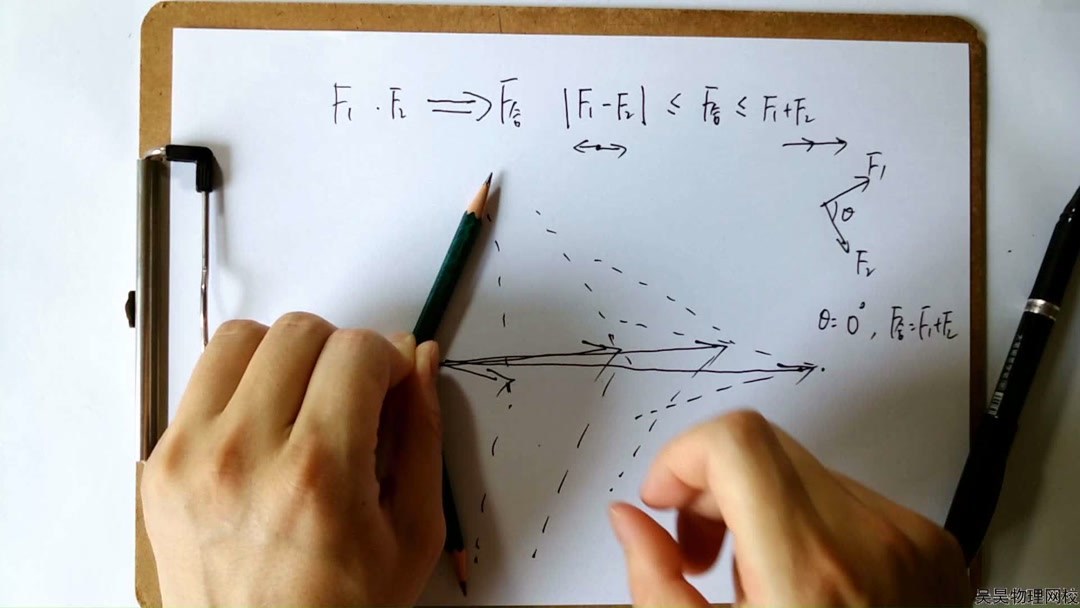 F₁ . F₂ ⟹ F合 |F₁-F₂| ≤ F合 ≤ F₁+F₂
F₁
θ
F₂
θ=0°, F合=F₁+F₂
吴昊物理网校